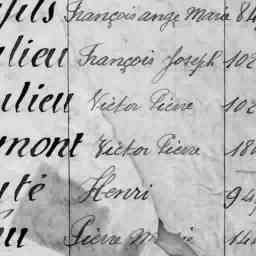 fils François ange Marie 84
ulieu François Joseph 102
ulieu Victor Pierre 102
mont Victor Pierre 18
uté Henri 94
Pierre 14